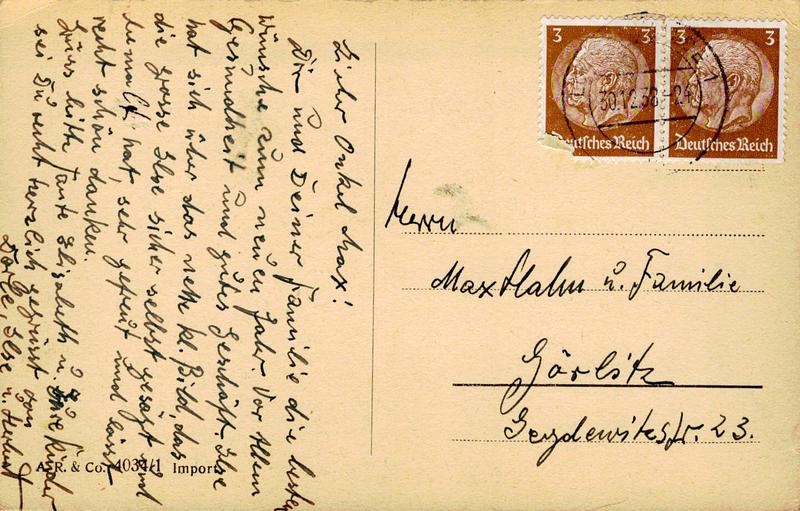 Lieber Onkel Max!
Dir und Deiner Familie die besten
Wünsche zum neuen Jahr. Vor Allem
Gesundheit und gutes Geschäft. Ilse
hat sich über das nette kl. Bild, das
die grosse Ilse sicher selbst gesägt und
bemalt hat, sehr gefreut und lässt
recht schön danken.
Grüss bitte Tante Elisabeth u. Kinder
sei Du recht herzlich gegrüsst von
Ilse u. Herbert
A. R. & Co. 4034/1 Import
3 3
Deutsches Reich Deutsches Reich
30.12.38 -24
Herrn
Max Hahn u. Familie
Görlitz
Seydewitzstr. 23.